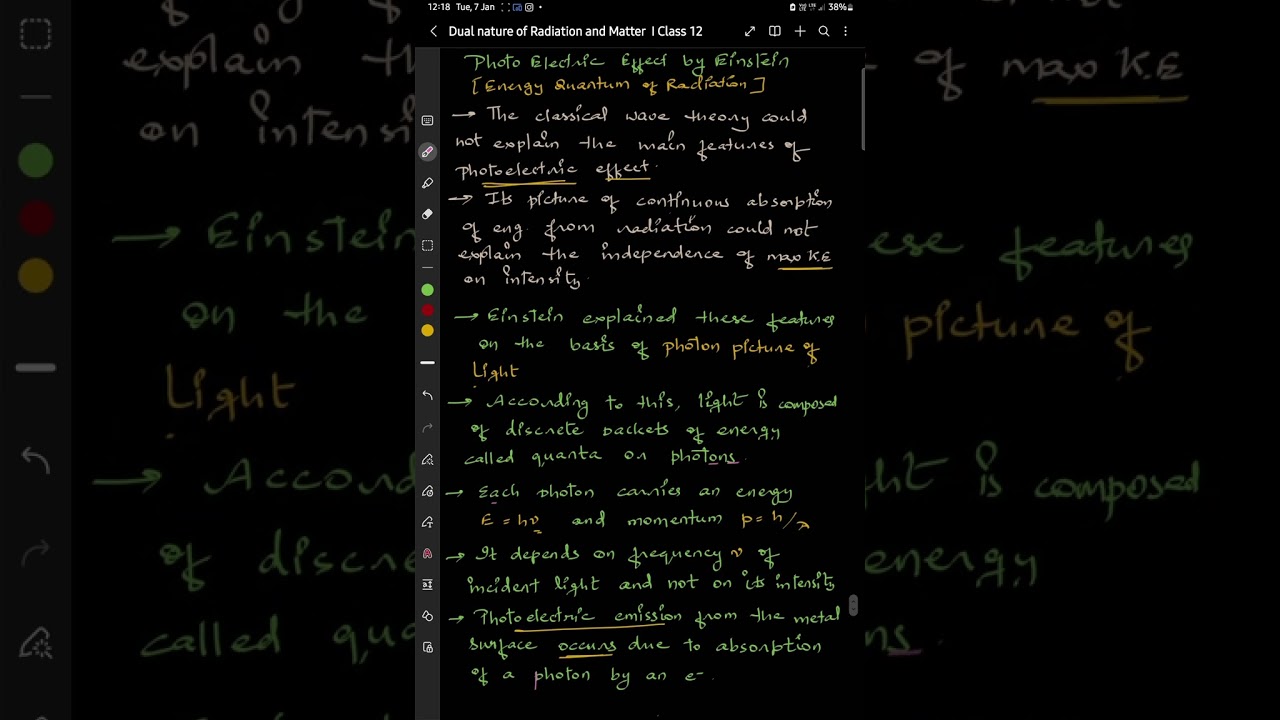 12:18 Tue, 7 Jan 38%
Dual nature of Radiation and Matter I Class 12
Photo Electric Effect by Einstein
[Energy Quantum of Radiation]
→ The classical wave theory could
not explain the main features of
photoelectric effect.
→ Its picture of continuous absorption
of eng. from radiation could not
explain the independence of max K.E
on intensity.
→ Einstein explained these features
on the basis of photon picture of
Light
→ According to this, light is composed
of discrete packets of energy,
called quanta or photons.
→ Each photon carries an energy
E = hν and momentum p = h/λ
→ It depends on frequency ν of
incident light and not on its intensity
→ Photoelectric emission from the metal
surface occurs due to absorption
of a photon by an e-.
explain
of max K.E
on intensi
→ Einstein
ese features
on the
picture of
Light
→ Accord
ht is composed
of discre
energy,
called qua
ns.